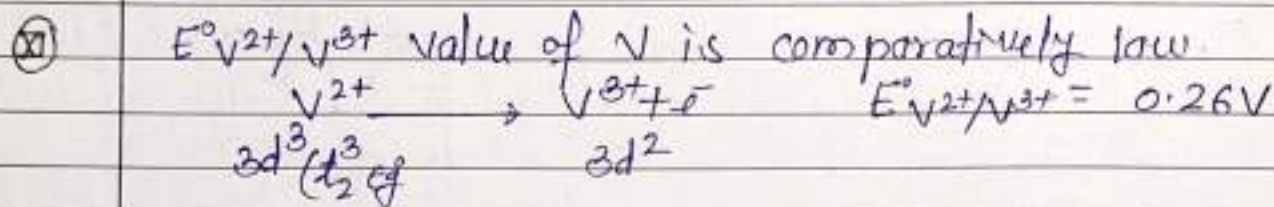 (XI) E°V²⁺/V³⁺ value of V is comparatively low.
V²⁺ ⟶ V³⁺+ē E°V²⁺/V³⁺ = 0.26V
3d³(t₂³ eg 3d²